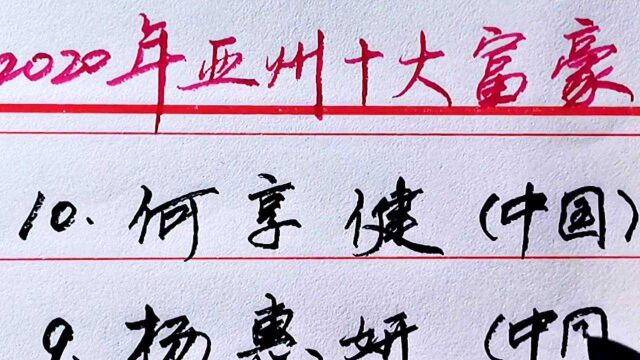 2020年亚州十大富豪
10.何享健(中国)
9.杨惠妍(中国